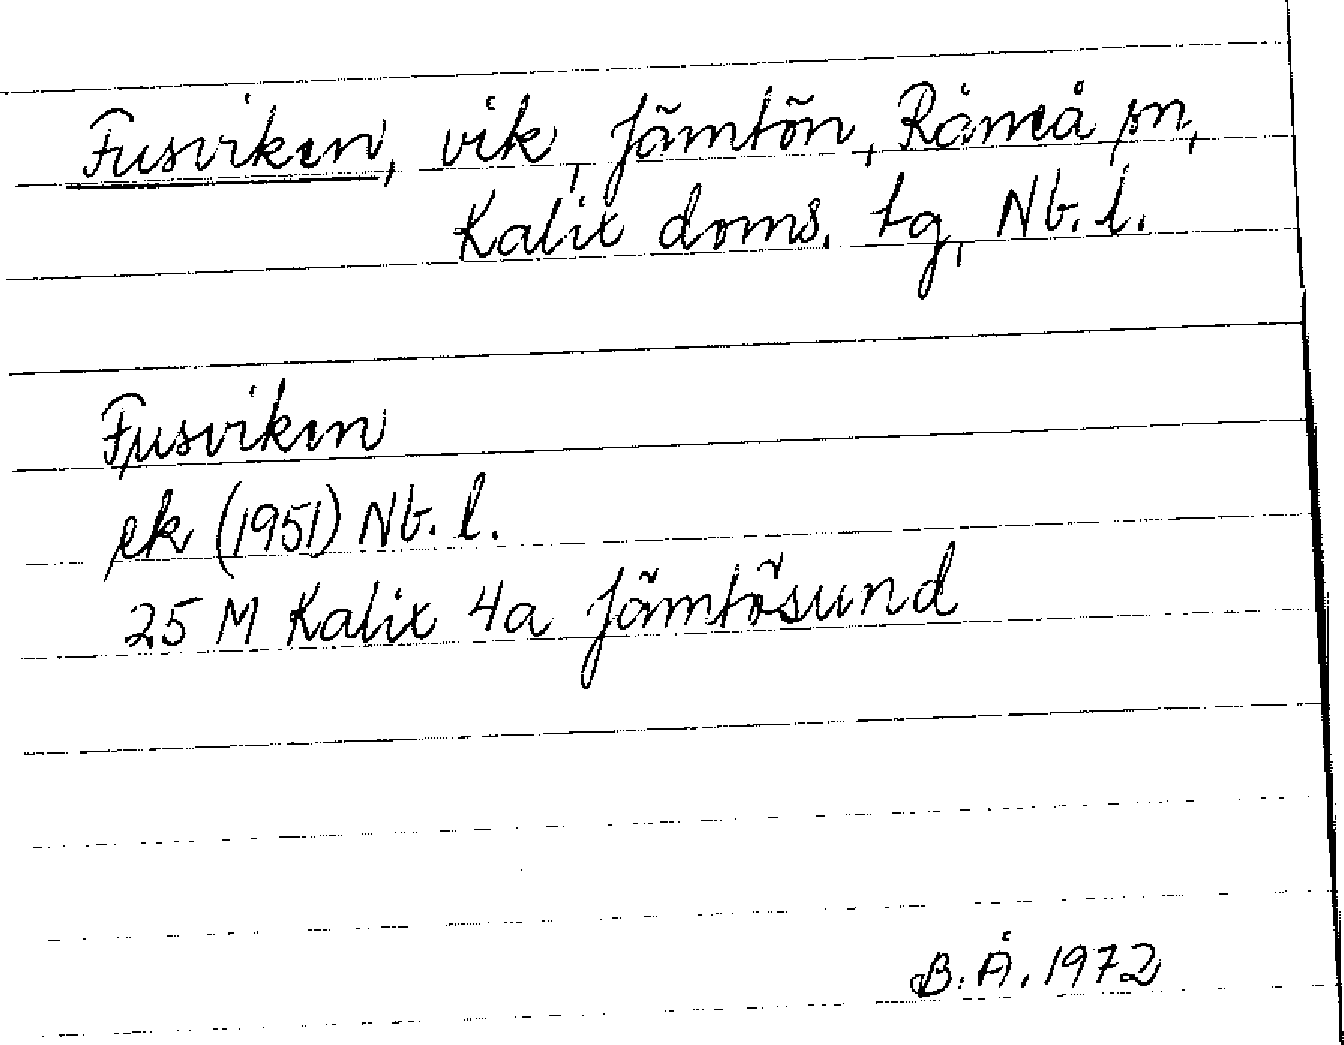 Fusviken, vik, Jämtön, Råneå sn,
Kalix doms. tg, Nb. l.
Fusviken
ek (1951) Nb. l.
25 M Kalix 4a Jämtösund
B. Å. 1972